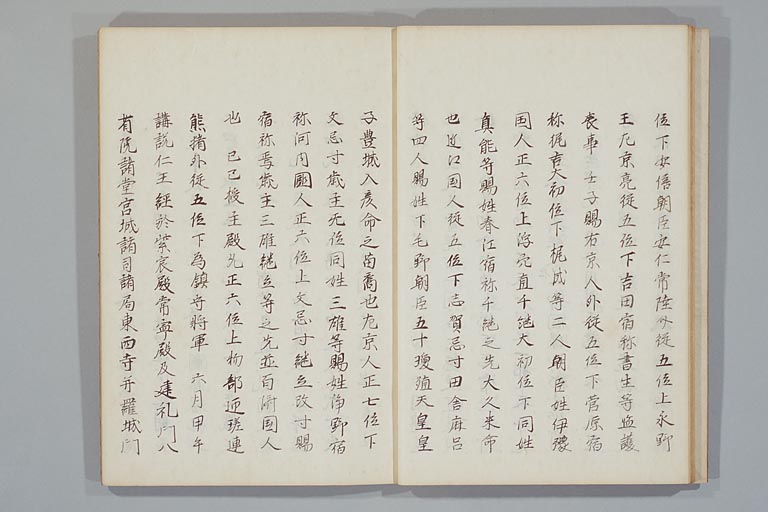 位下安倍朝臣安仁常陸外從五位上永野
王左京亮從五位下吉田宿祢書主等監護
喪事 壬子賜右京人外從五位下菅原宿
祢梶吉大初位下梶成等二人朝臣姓伊豫
国人正六位上浮穴直千継大初位下同姓
真能等賜姓春江宿祢千継之先大久米命
也近江国人從五位下志賀忌寸田舎麻呂
等四人賜姓下毛野朝臣五十瓊殖天皇皇
子豊城入彦命之苗裔也左京人正七位下
文忌寸歳主无位同姓三雄等賜姓浄野宿
祢河内國人正六位上文忌寸継立改寸賜
宿祢焉歳主三雄継立等之先並百済国人
也 己巳授主殿允正六位上物部匝瑳連
熊猪外從五位下為鎮守将軍 六月甲午
講説仁王経於紫宸殿常寧殿及建礼門八
省院諸堂宮城諸司諸局東西寺并羅城門